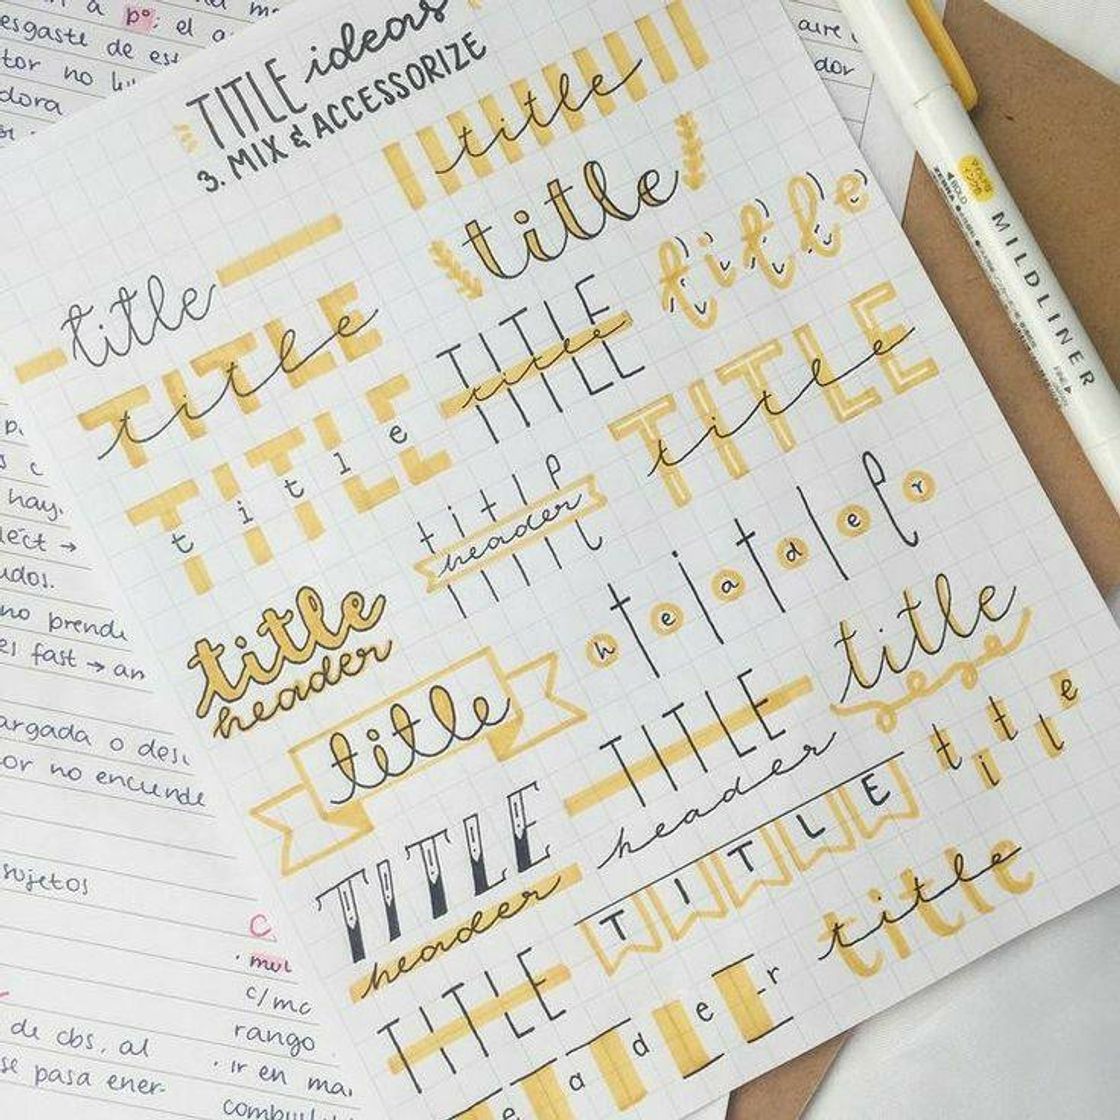 TITLE ideas
3. MIX & ACCESSORIZE
title
title
title
title
TITLE
title
TITLE
title
TITLE
title
TITLE
title
title
header
title
header
title
header
title
title
TITLE
header
TITLE
header
title
TITLE
title
TITLE
eader
po: el a
esgaste de es
tor no lu
dora
aire
dor
hay.
lect →
udos.
no prende
fast → an
argada o des
or no encuende
sujetos
C
· mul
c/mc
rango
· ir en ma
combust
de cbs, al
se pasa ener-
MILDLINER
ZEBRA
BOLD
FINE